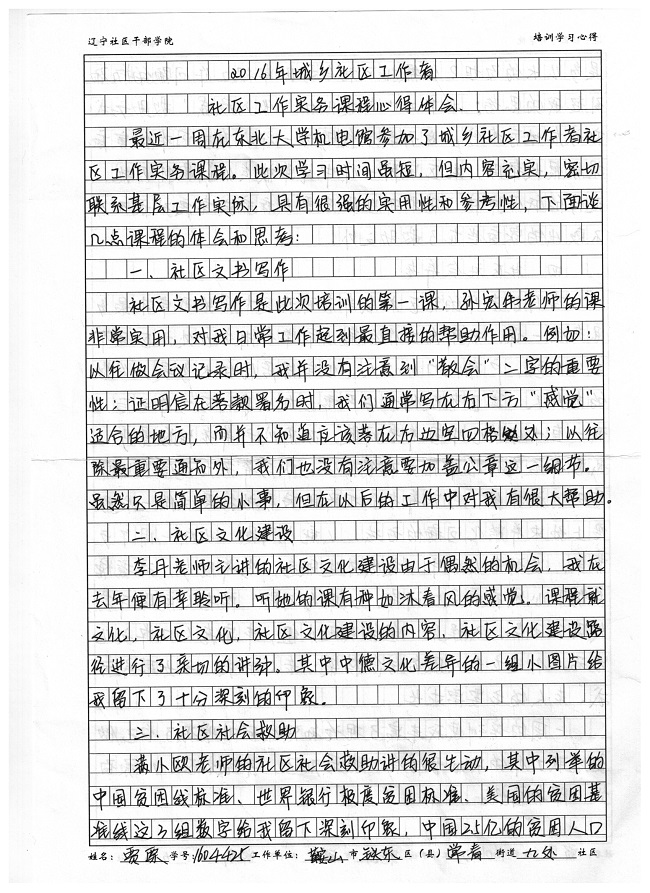 辽宁社区干部学院 培训学习心得
2016年城乡社区工作者
社区工作实务课程心得体会.
最近一周在东北大学机电馆参加了城乡社区工作者社
区工作实务课程。此次学习时间虽短，但内容充实，密切
联系基层工作实际，具有很强的实用性和参考性，下面谈
几点课程的体会和思考：
一、社区文书写作
社区文书写作是此次培训的第一课，孙宏伟老师的课
非常实用，对我日常工作起到最直接的帮助作用。例如：
以往做会议记录时，我并没有注意到“散会”二字的重要
性；证明信在落款署名时，我们通常写在右下方“感觉”
适合的地方，而并不知道应该落在右边空四格处；以往
除最重要通知外，我们也没有注意要加盖公章这一细节。
虽然只是简单的小事，但在以后的工作中对我有很大帮助。
二、社区文化建设
李丹老师主讲的社区文化建设由于偶然的机会，我在
去年便有幸聆听。听她的课有种如沐春风的感觉。课程就
文化，社区文化，社区文化建设的内容，社区文化建设路
径进行了亲切的讲述。其中中德文化差异的一组小图片给
我留下了十分深刻的印象。
三、社区社会救助
黄小欧老师的社区社会救助讲的很生动，其中列举的
中国贫困线标准、世界银行极度贫困标准、美国的贫困基
准线这3组数字给我留下深刻印象，中国2.5亿的贫困人口
姓名： 贾 学号：1604425 工作单位： 鞍山 市 铁东 区（县） 常青 街道 九外 社区